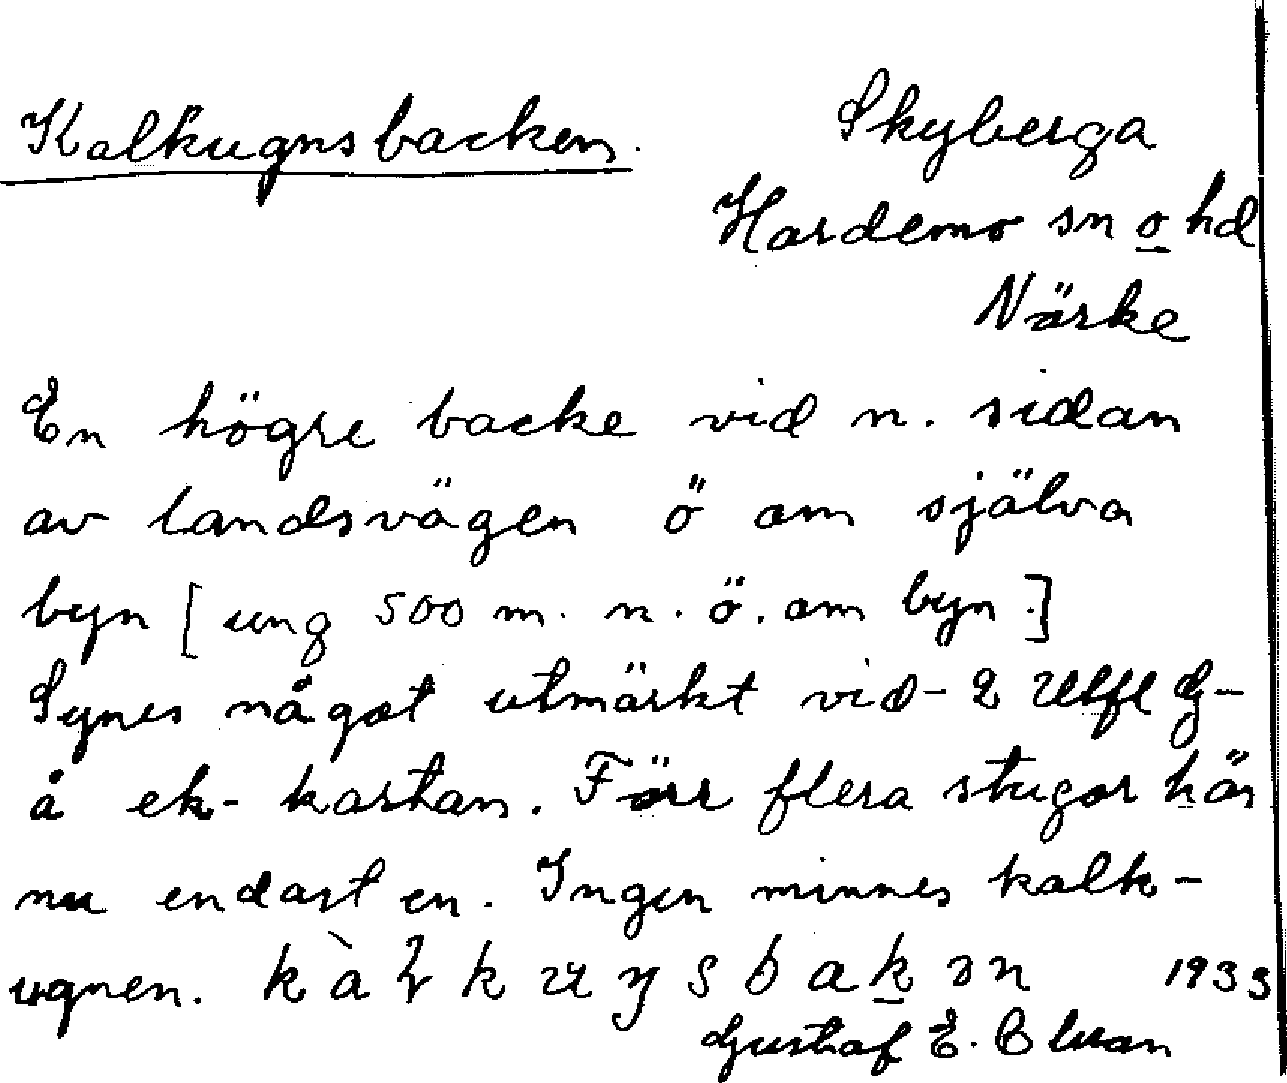 Kalkugnsbacken.
Skyberga
Hardemo sn o hd
Närke
En högre backe vid n. sidan
av landsvägen ö om själva
byn [ung 500 m. n. ö. om byn.]
Synes något utmärkt vid 2
å ek-kartan. Förr flera stugor här
nu endast en. Ingen minnes kalk-
ugnen. 1933
Gustaf E.